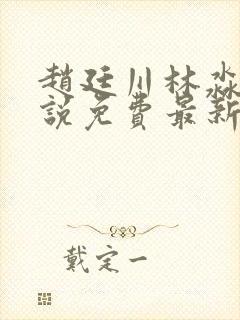 趙廷川林淼
說免費最新
戴定一